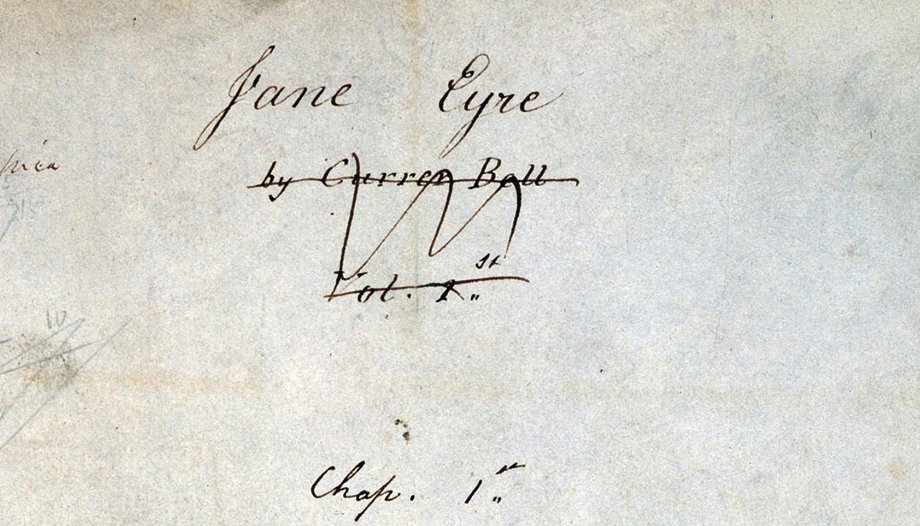 Jane Eyre
by Currer Bell
Vol. 1st
10
Chap. 1st